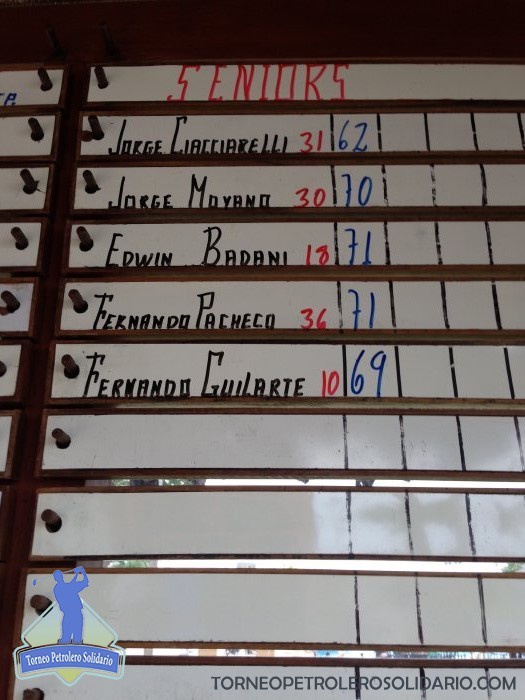 SENIORS
JORGE CIACCIARELLI 31 62
JORGE MOYANO 30 70
EDWIN BADANI 18 71
FERNANDO PACHECO 36 71
FERNANDO GUILARTE 10 69
Torneo Petrolero Solidario
TORNEOPETROLEROSOLIDARIO.COM